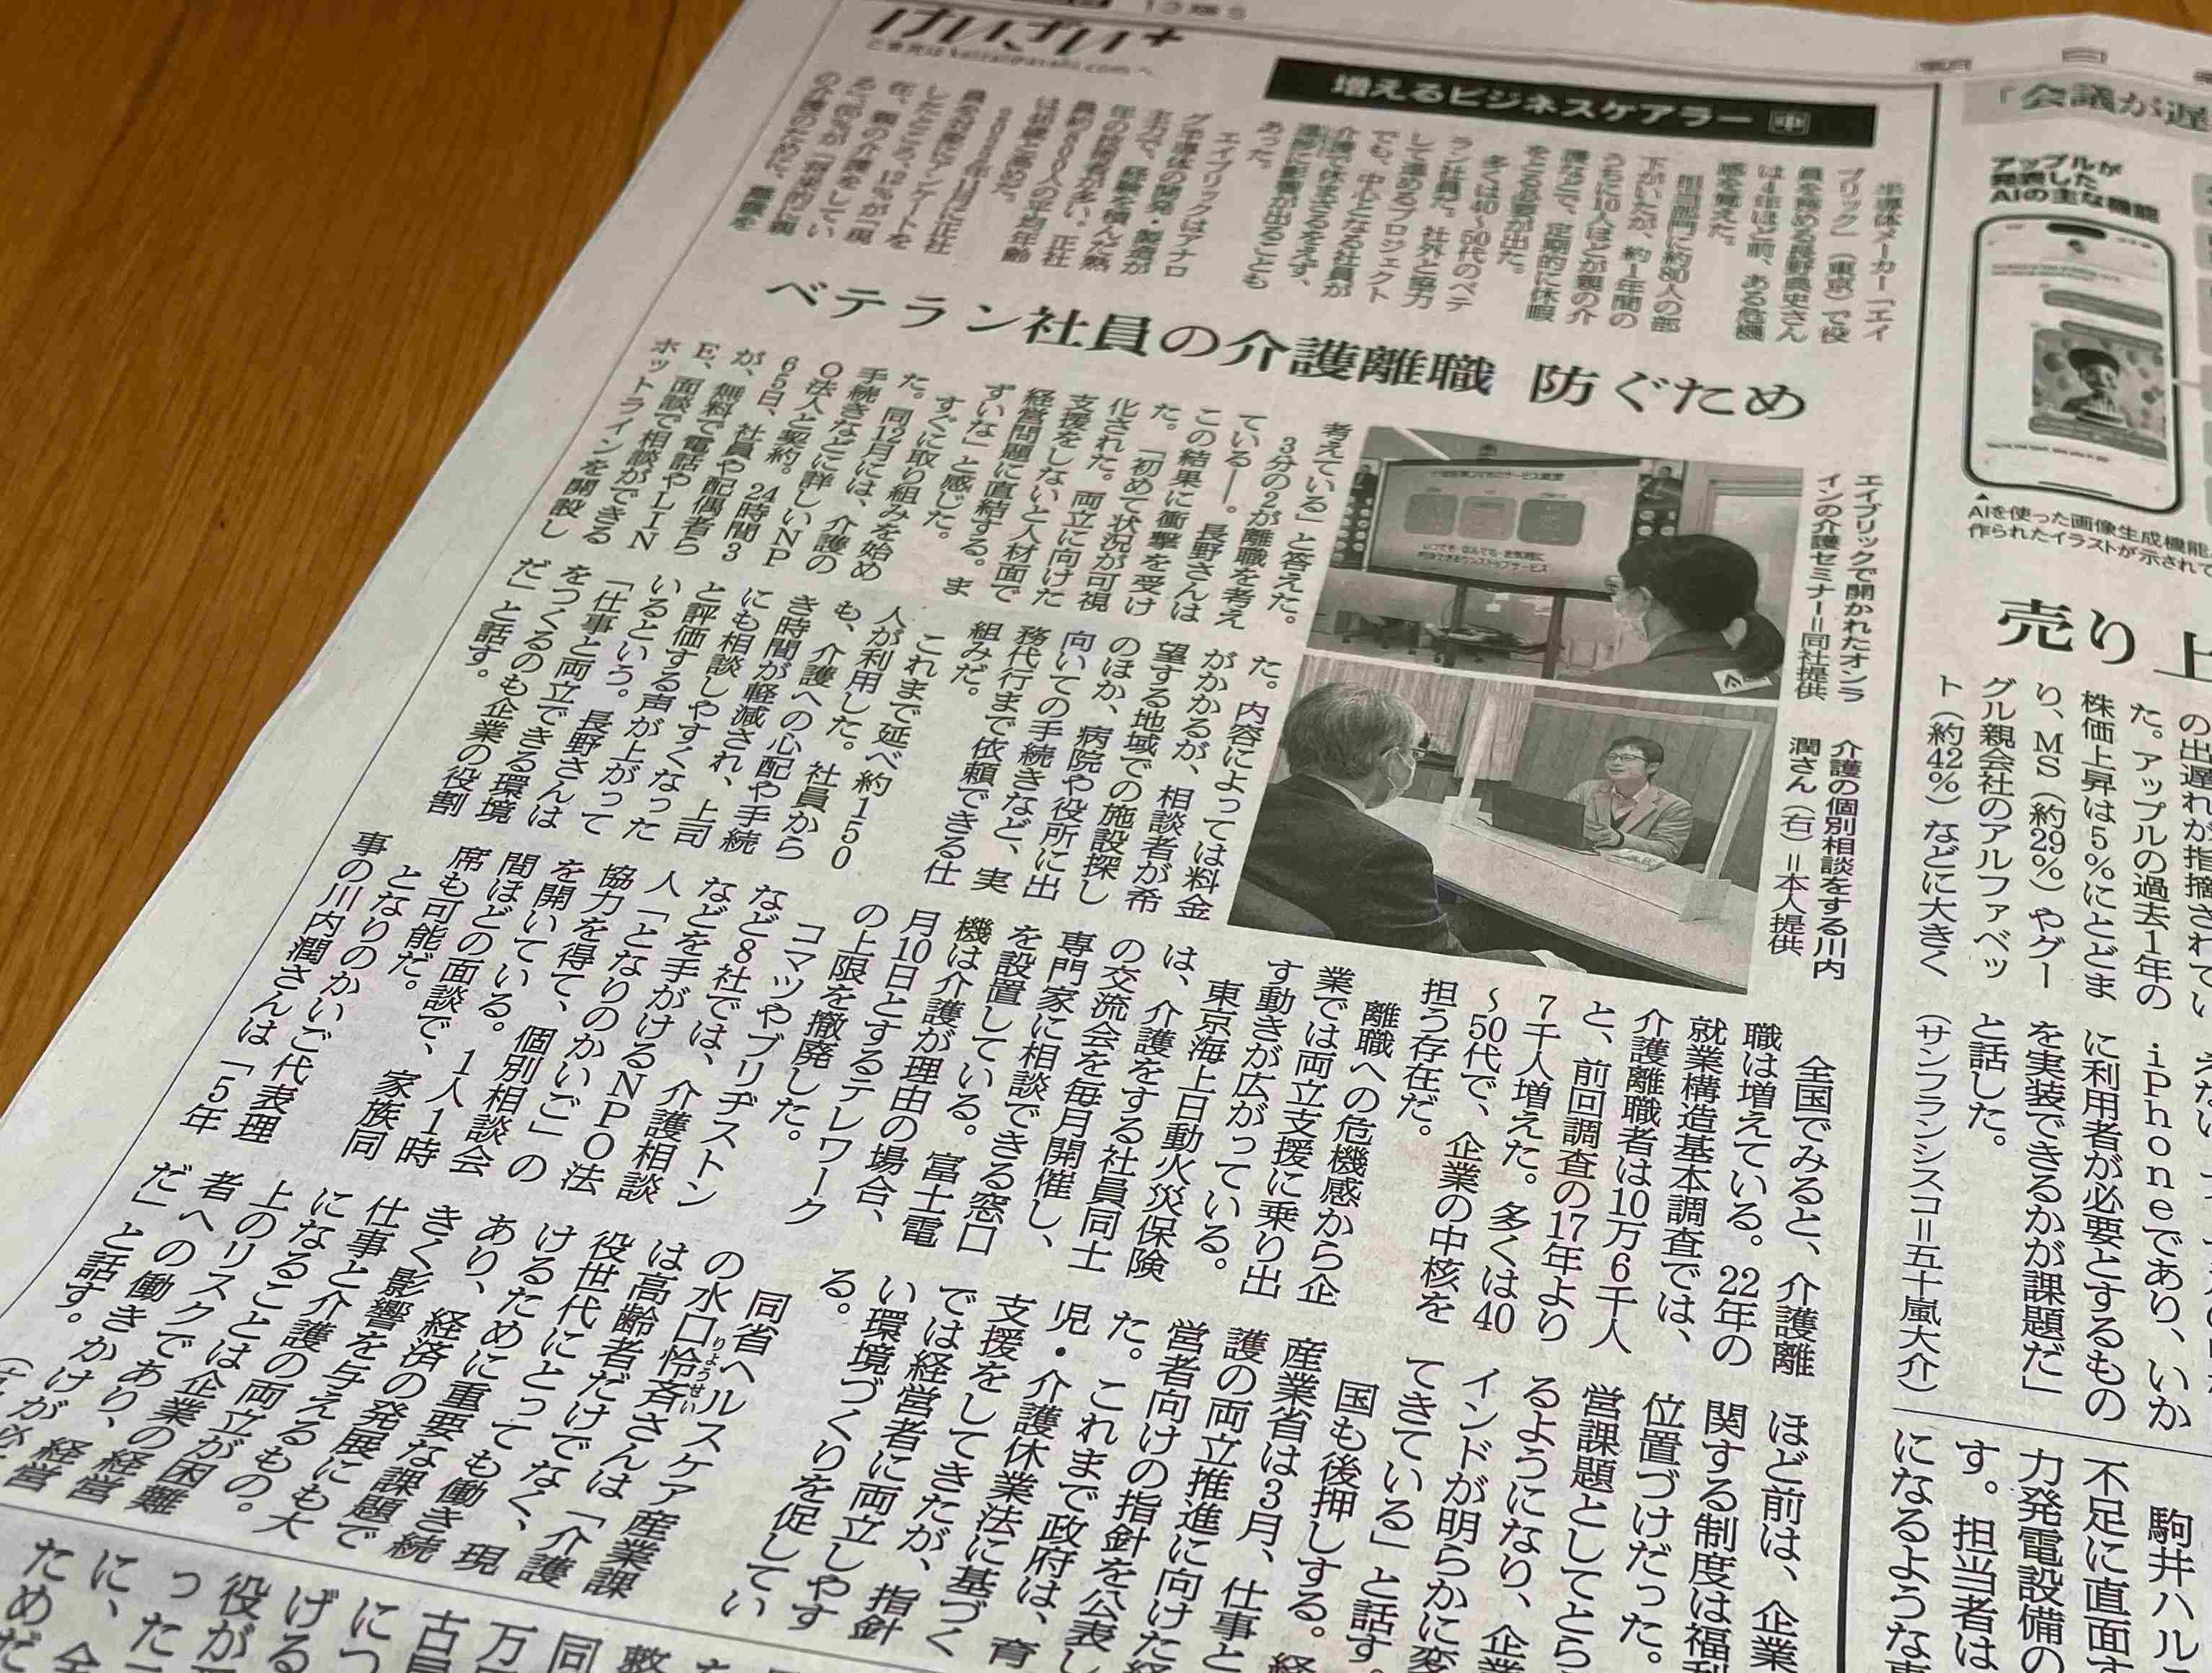 けいざい+
ご意見は keizai@asahi.com へ
増えるビジネスケアラー 中
半導体メーカー「エイ
ブリック」（東京）で役
員を務める長野典史さん
は4年ほど前、ある危機
感を覚えた。
担当部門に約80人の部
下がいたが、約1年間の
うちに10人ほどが親の介
護などで、定期的に休暇
をとる必要が出た。
多くは40〜50代のベテ
ラン社員だ。社外と協力
して進めるプロジェクト
でも、中心となる社員が
介護で休まざるをえず、
進捗に影響が出ることも
あった。
エイブリックはアナロ
グ半導体の開発・製造が
主力で、経験を積んだ熟
年の技術者が多い。正社
員をした
在、親の介護をしてい
の介護のために、離職を
ベテラン社員の介護離職 防ぐため
考えている」と答えた。
3分の2が離職を考え
ている――。長野さんは
この結果に衝撃を受け
た。「初めて状況が可視
化された。両立に向けた
支援をしないと人材面で
経営問題に直結する。ま
ずいな」と感じた。
すぐに取り組みを始め
た。同12月には、介護の
手続きなどに詳しいNP
O法人と契約。24時間3
65日、社員や配偶者ら
が、無料で電話やLIN
E、面談で相談ができる
ホットラインを開設し
た。内容によっては料金
がかかるが、相談者が希
望する地域での施設探し
のほか、病院や役所に出
向いての手続きなど、実
務代行まで依頼できる仕
組みだ。
これまで延べ約150
人が利用した。社員から
も、介護への心配や手続
き時間が軽減され、上司
にも相談しやすくなった
と評価する声が上がって
いるという。長野さんは
「仕事と両立できる環境
をつくるのも企業の役割
だ」と話す。
エイブリックで開かれたオンラ
インの介護セミナー＝同社提供
介護の個別相談をする川内
潤さん（右）＝本人提供
全国でみると、介護離
職は増えている。22年の
就業構造基本調査では、
介護離職者は10万6千人
と、前回調査の17年より
7千人増えた。多くは40
〜50代で、企業の中核を
担う存在だ。
離職への危機感から企
業では両立支援に乗り出
す動きが広がっている。
東京海上日動火災保険
は、介護をする社員同士
の交流会を毎月開催し、
専門家に相談できる窓口
を設置している。富士電
機は介護が理由の場合、
月10日とするテレワーク
の上限を撤廃した。
コマツやブリヂストン
など8社では、介護相談
などを手がけるNPO法
人「となりのかいご」の
協力を得て、個別相談会
を開いている。1人1時
間ほどの面談で、家族同
席も可能だ。
となりのかいご代表理
事の川内潤さんは「5年
ほど前は、企業
関する制度は福利
位置づけだった。
営課題としてとら
るようになり、企業
インドが明らかに変
てきている」と話す。
国も後押しする。経
産業省は3月、仕事と
護の両立推進に向けた経
営者向けの指針を公表し
た。これまで政府は、育
児・介護休業法に基づく
支援をしてきたが、指針
では経営者に両立しやす
い環境づくりを促してい
る。
同省ヘルスケア産業課
の水口怜斉さんは「介護
りょうせい
は高齢者だけでなく、現
役世代にとっても働き続
けるために重要な課題で
あり、経済の発展にも大
きく影響を与えるもの。
仕事と介護の両立が困難
になることは企業の経営
上のリスクであり、経営
者への働きかけが必要
だ」と話す。
「会議が遅
アップルが
発表した
AIの主な機能
AIを使った画像生成機能
作られたイラストが示されて
売り上
の出遅れが指摘されてい
た。アップルの過去1年の
株価上昇は5%にとどま
り、MS（約29%）やグー
グル親会社のアルファベッ
ト（約42%）などに大きく
iPhoneであり、いか
に利用者が必要とするもの
を実装できるかが課題だ」
と話した。
（サンフランシスコ＝五十嵐大介）
駒井ハル
不足に直面す
力発電設備の
す。担当者は
になるような